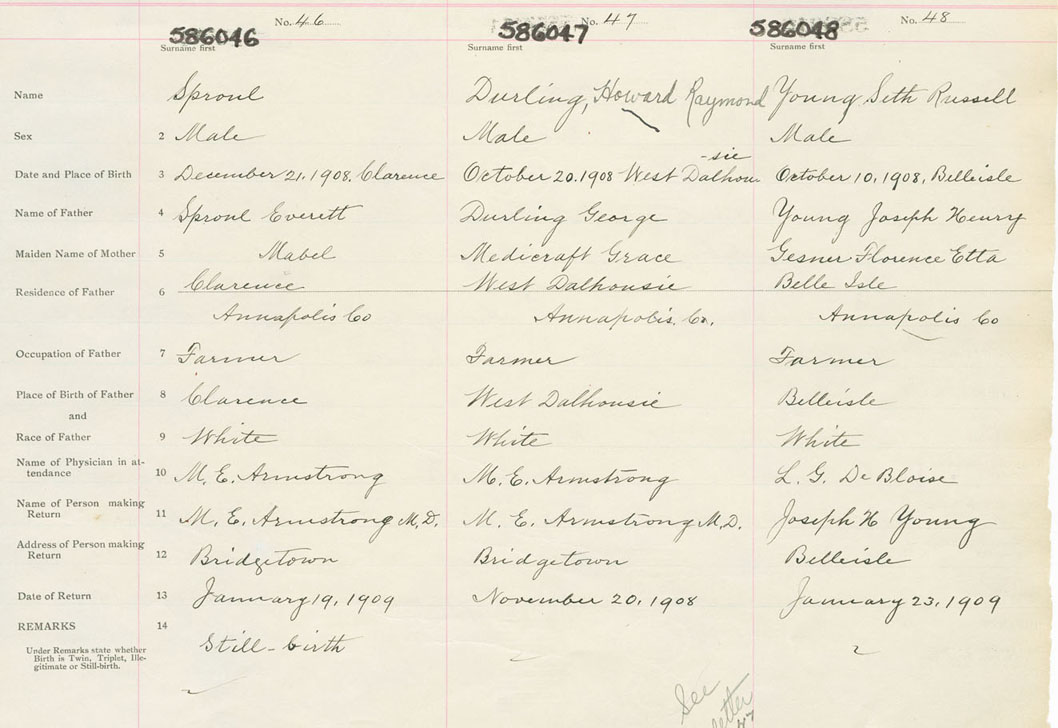 No. 46 No. 47 No. 48
586046 586047 586048
Surname first Surname first Surname first
Name Sproul Durling, Howard Raymond Young, Seth Russell
Sex 2 Male Male Male
-sie
Date and Place of Birth 3 December 21, 1908. Clarence October 20. 1908 West Dalhou October 10, 1908, Belleisle
Name of Father 4 Sproul Everett Durling George Young Joseph Henry
Maiden Name of Mother 5 Mabel Medicraft Grace Gesner Florence Etta
Residence of Father 6 Clarence West Dalhousie Belle Isle
Annapolis Co Annapolis. Co. Annapolis Co
Occupation of Father 7 Farmer Farmer Farmer
Place of Birth of Father 8 Clarence West Dalhousie Belleisle
and
Race of Father 9 White White White
Name of Physician in at-
tendance 10 M. E. Armstrong M. E. Armstrong L. G. De Bloise
Name of Person making
Return 11 M. E. Armstrong M. D. M. E. Armstrong M. D. Joseph H Young
Address of Person making
Return 12 Bridgetown Bridgetown Belleisle
Date of Return 13 January 19, 1909 November 20, 1908 January 23, 1909
REMARKS 14
Under Remarks state whether
Birth is Twin, Triplet, Ille-
gitimate or Still-birth.
Still-birth
See
letter
47